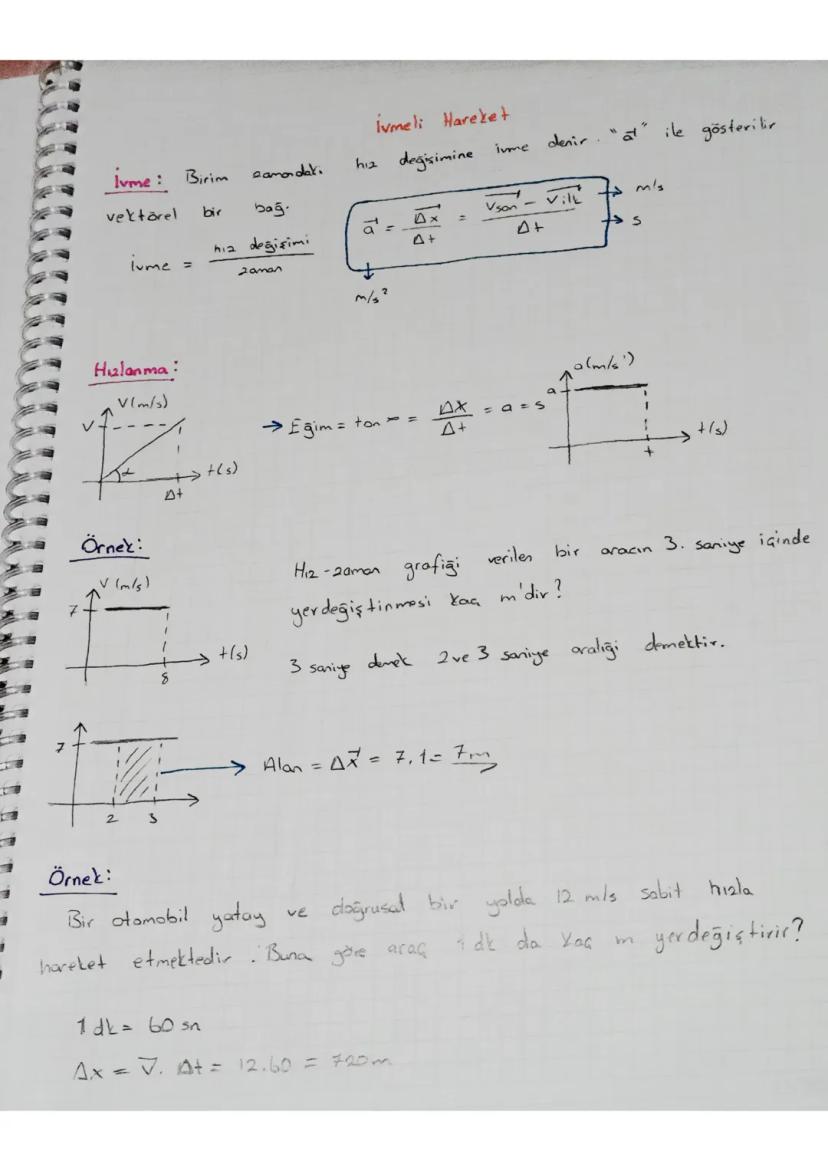 İvmeli Hareket
İvme: Birim zamandaki hız değişimine ivme denir. "a⃗" ile gösterilir
vektörel bir bağ.
İvme = hız değişimi / zaman
a⃗ = Δx / Δt = Vson - Vilk / Δt
m/s
s
m/s²
Hızlanma:
V(m/s)
V
α
t(s)
Δt
→ Eğim = tan ∝ = Δx / Δt = a = s
a(m/s²)
a
t(s)
t
Örnek:
V (m/s)
7
t(s)
8
Hız-zaman grafiği verilen bir aracın 3. saniye içinde
yerdeğiştirmesi kaç m'dir?
3 saniye demek 2 ve 3 saniye aralığı demektir.
7
2 3
Alan = Δx⃗ = 7.1 = 7m
Örnek:
Bir otomobil yatay ve doğrusal bir yolda 12 m/s sabit hızla
hareket etmektedir. Buna göre araç 1 dk da kaç m yerdeğiştirir?
1 dk = 60 sn
Δx = V. Δt = 12.60 = 720m